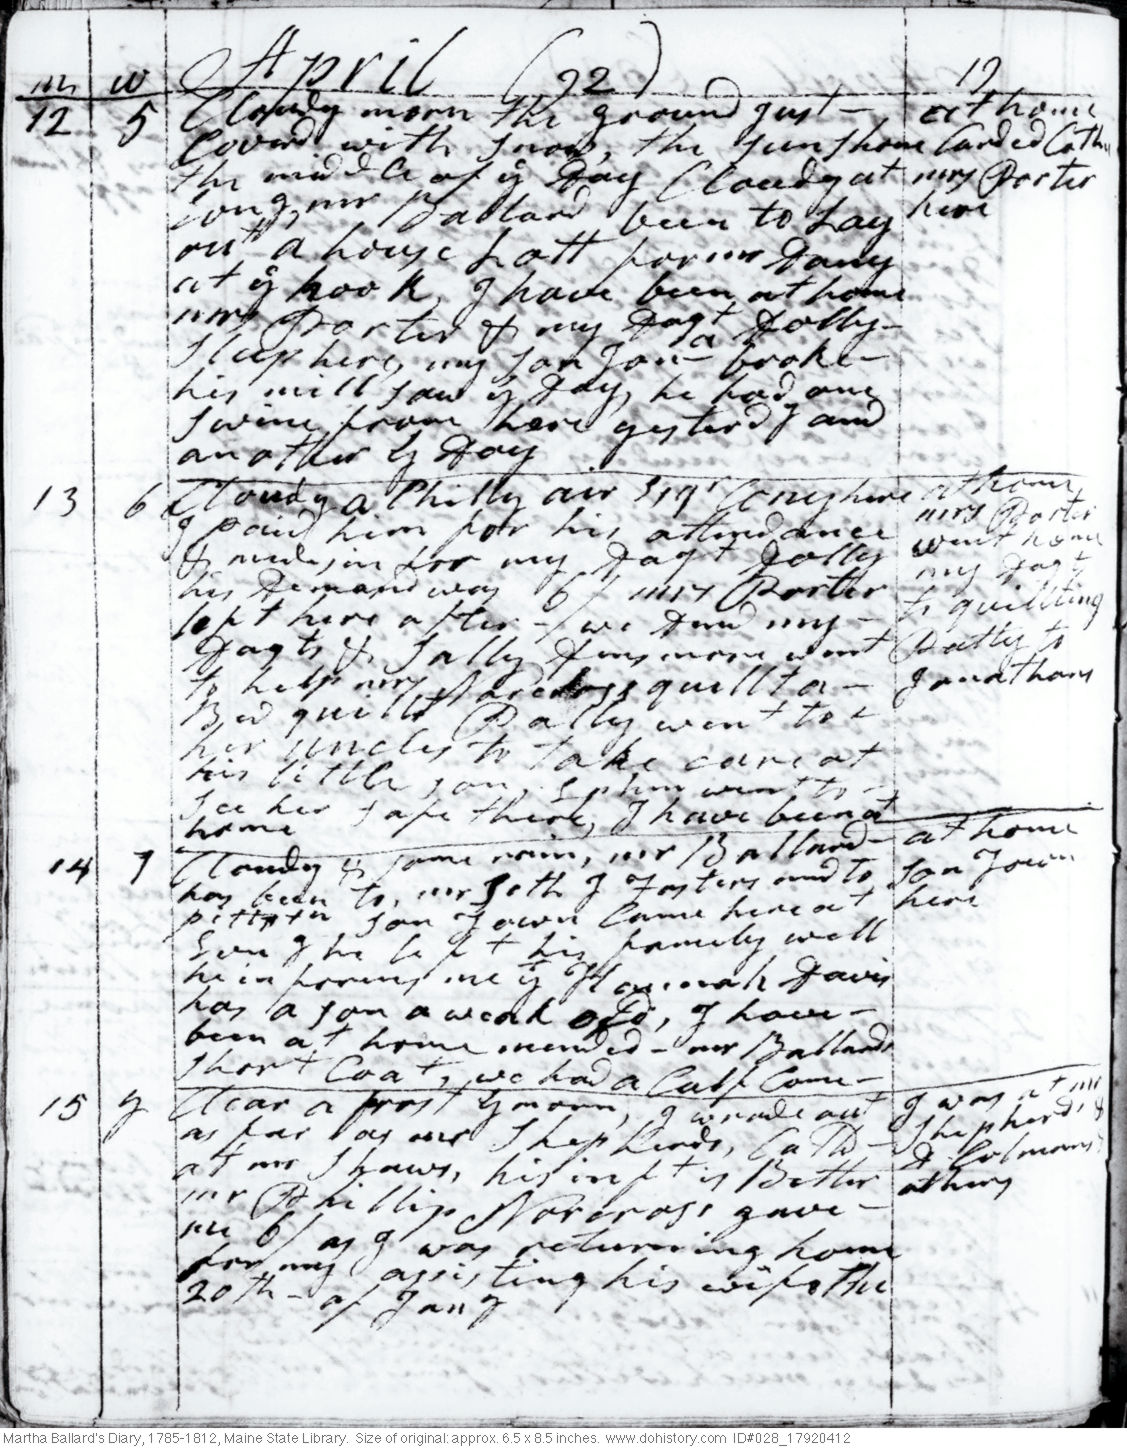 April (92) 12
m w
12 5 Cloudy morn the ground just - at home
Coverd with snow, the sun shone Carded Cotn
the middle of ye Day Cloudy at mrs Porter
Eveng, mr Ballard been to Lay here
out a house Lott for mr Dany
at ye hook, I have been at home
mrs Porter & my Dagt Dolly -
Sleep here, my son Jona broke -
his mill saw ys Day, he had one
Swine from here yesterdy and
another ys Day
13 6 Cloudy a Chilly air Docr Coney here at home,
I paid him for his attendance mrs Porter
& medisin for my Dagt Dolly went home
his Demand was 6/ mrs Porter my Dagt
left here after we Dind my - to quillting
Dagts & Sally Densmore went Patty to
to help mrs Norcross quillt a - Jonathans
Bed quillt Patty went to -
her uncles to take care at
his little son, Ephm went to -
see her safe there, I have been at
home
14 7 Cloudy & some rain, mr Ballard - at home
has been to, mr Seth & J Fosters and to Son Town
pittstn son Town Came here at here
Evng he left his family well
he informs me yt Hannah Davis
has a son a week old, I have -
been at home mended - mr Ballards
short Coat, we had a Calf Come -
15 g Clear a frost ys morn, I wrode out I was at mr
as far as mr Shepherds, Calld - Shepherds, &
at mr Shaws, his inft is Better & Colmans &
mr Phillip Norcross gave - others
me 6/ as I was returning home
for my assisting his wife the
20th - of Jany
Martha Ballard's Diary, 1785-1812, Maine State Library. Size of original: approx. 6.5 x 8.5 inches. www.dohistory.com ID#028_17920412